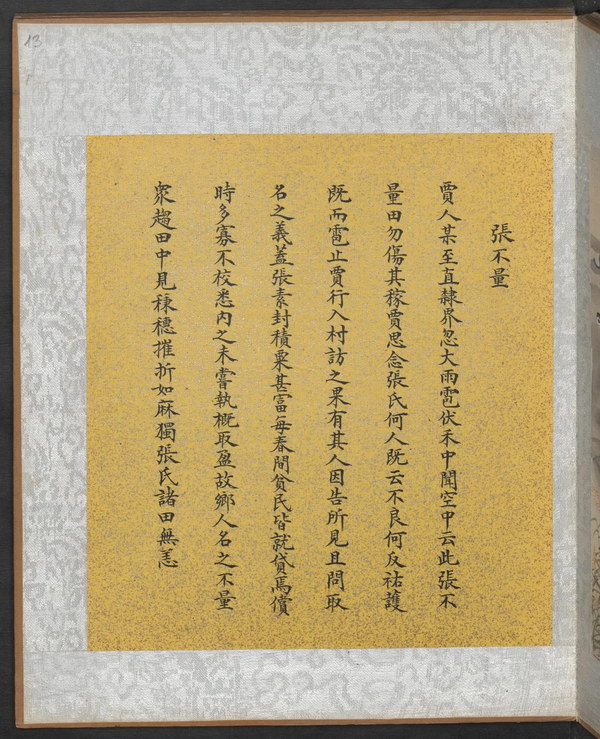 13
張不量
賈人某至直隸界忽大雨雹伏禾中聞空中云此張不
量田勿傷其稼賈思念張氏何人既云不良何反祐護
既而雹止賈行入村訪之果有其人因告所見且問取
名之義蓋張素封積粟甚富每春間貧民皆就貸焉償
時多寡不校悉內之未嘗執概取盈故鄉人名之不量
眾趨田中見稞穗摧折如麻獨張氏諸田無恙